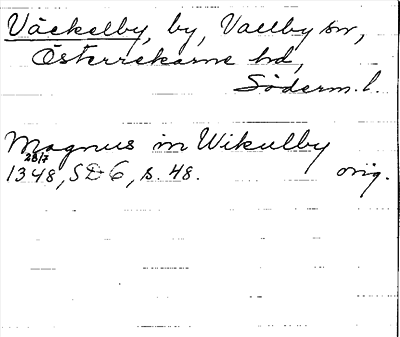 Väckelby, by, Vallby sn,
Österrekarne hd,
Söderm. l.
Magnus in Wikulby
28/7
1348, SD 6, s. 48. orig.